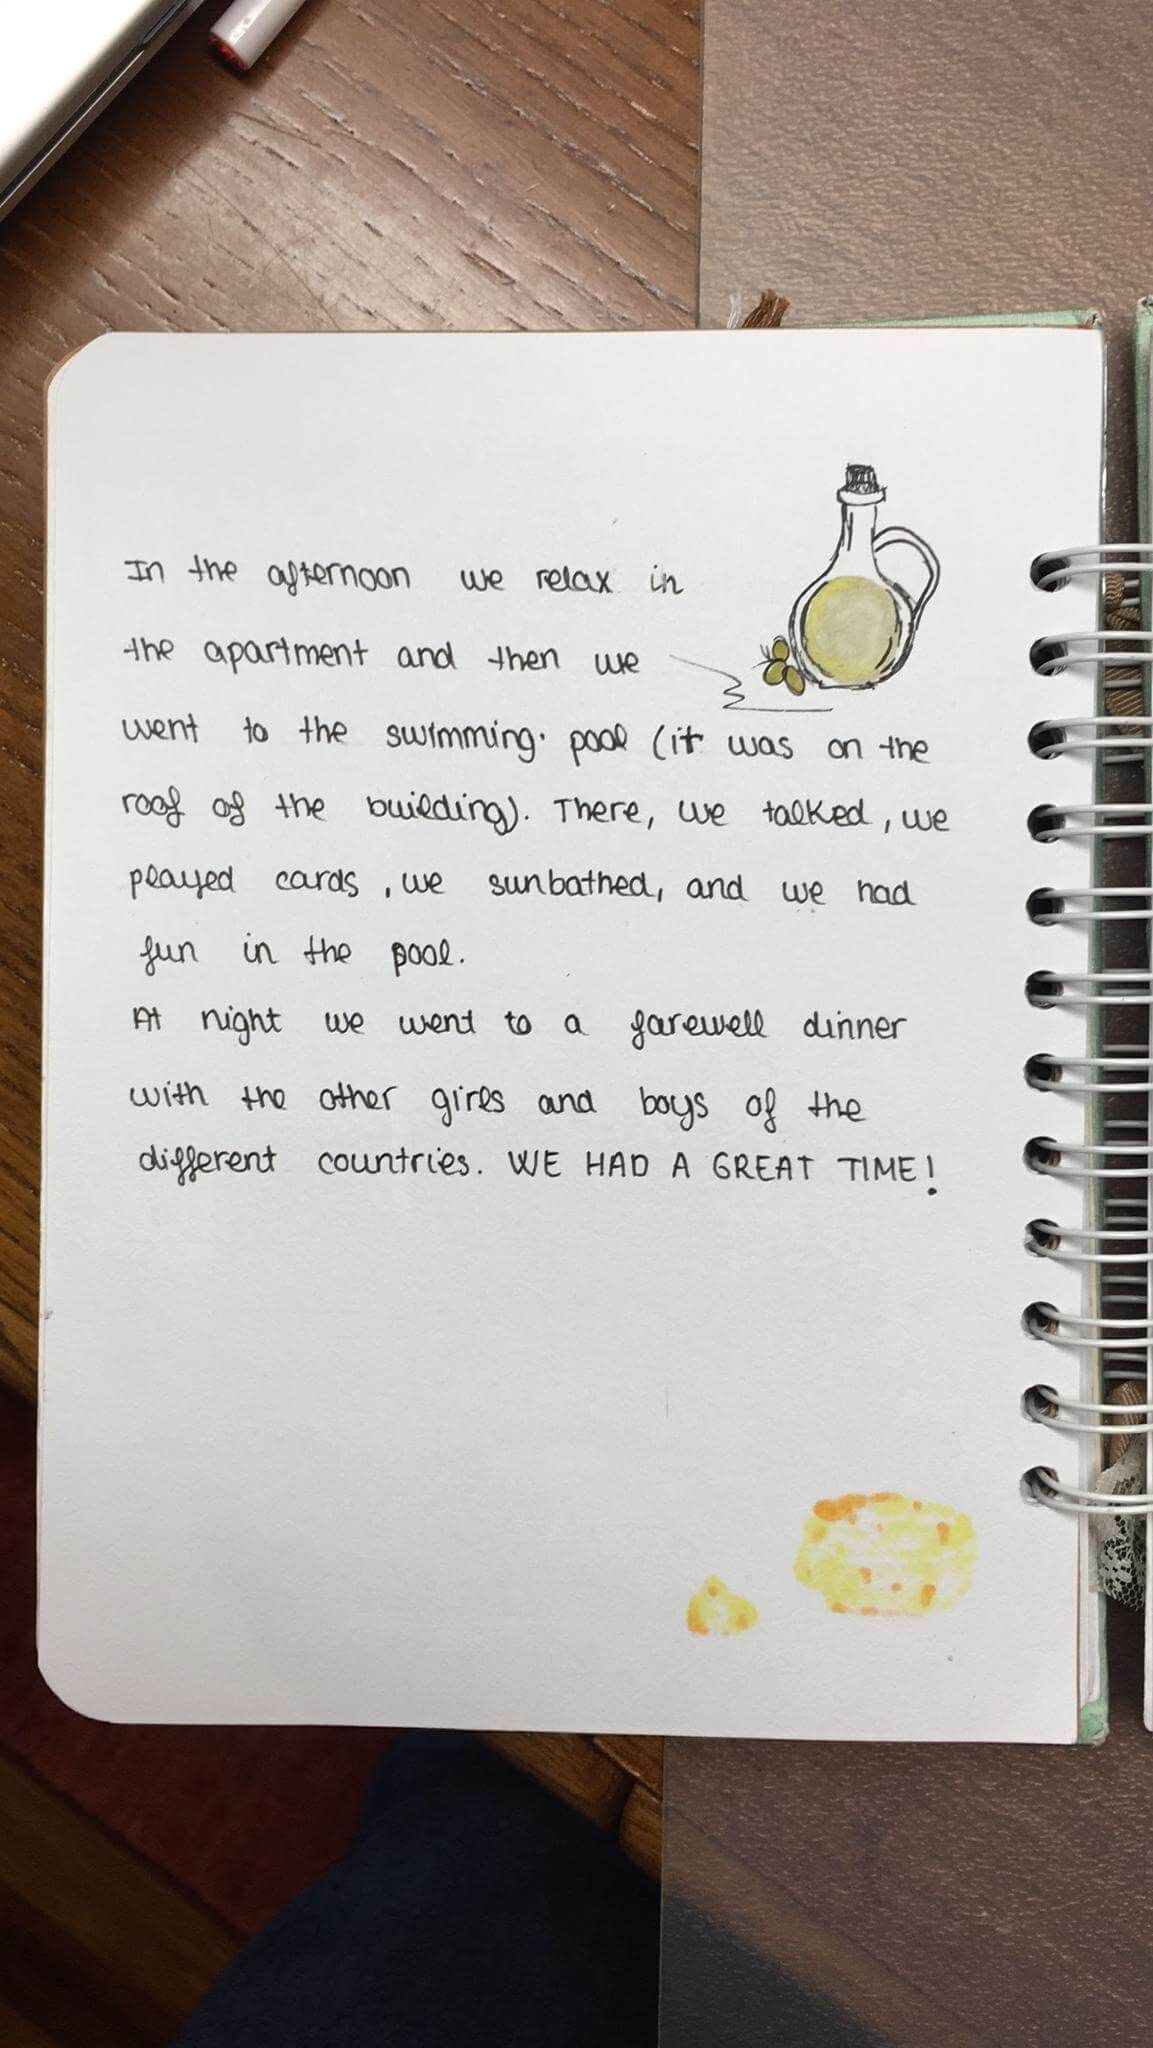 In the afternoon we relax in
the apartment and then we
went to the swimming pool (it was on the
roof of the building). There, we talked, we
played cards, we sunbathed, and we had
fun in the pool.
At night we went to a farewell dinner
with the other girls and boys of the
different countries. WE HAD A GREAT TIME!